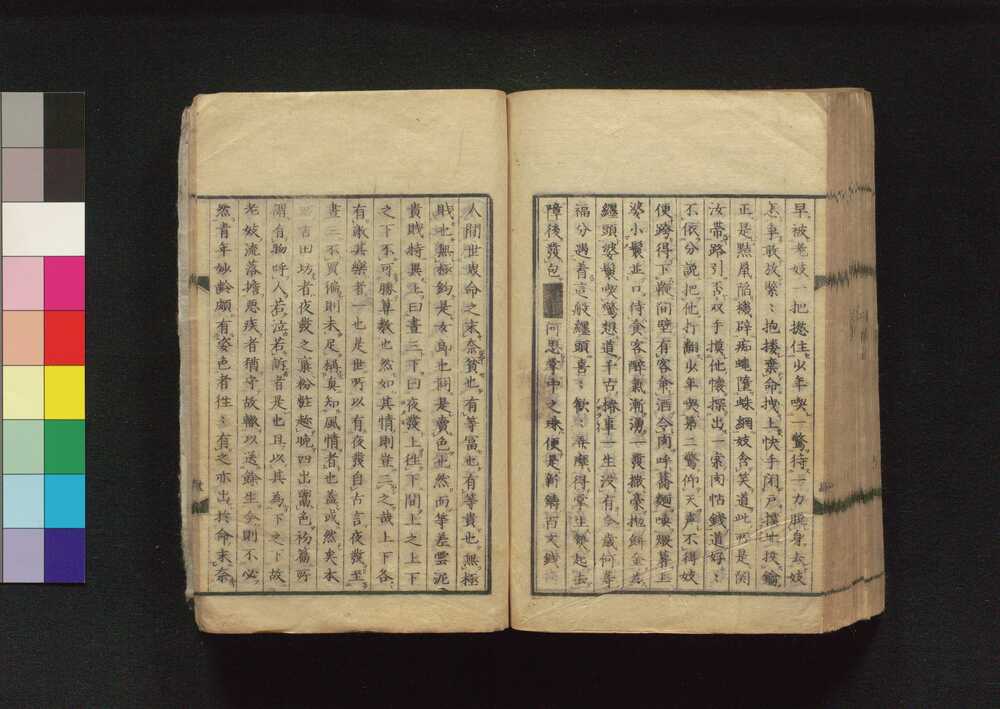 早被老妓一把捴住少年喫一驚待一力脱身去妓
怎享敢放緊〻抱搂棄命拽上快手閉戸撲出挍鑰
正是㸃鼠陥機碎痴蠅墮蛛網妓含笑道此恐是関
汝帶路引否双手摸他懐探出一索肉怗錢道好〻
不依分説把他打翻少年喫第二驚仰天声不得妓
便跨得下鞭間壁有客命酒令肉呼蕎麺喚煖暮正
婆小鬟並口侍食客醉氣漸湧一發撒豪抛餅金為
纏頭婆鬟喫驚想道千古撩車一生没有今歳何等
福分遇着這般纏頭喜〻歓〻弄摩得掌生皴起去
障後發包 何思掌中之珠便是新鋳百文錢
人間世叔命之末奈貧也有等富也有等貴也無極
賎也無極鈞是女島也同是賣色也然而等差雲泥
貴賎特異上曰晝三下曰夜發上徃下間上之上下
之下不可勝尊数也然如其情則豈二之哉上下各
有歓其樂者一也是世所以有夜發自古言夜發至
晝三不買徧則未足稱真知風情者也盖或然矣本
吉田坊者夜發之裏粉粧趂晩四出鬻色礽蔦所
謂有物呼人若泣若訴者是也且以其為下之下故
老妓流落擔惡疾者猶守故轍以送餘生今則不必
然青年妙齢頗有姿色者徃〻有之亦出技命末奈